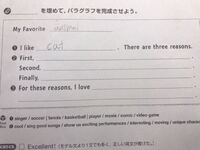 を埋めて、パラグラフを完成させよう。
My Favorite animal
① I like cat . There are three reasons.
② First,
Second,
Finally,
③ For these reasons, I love .
① singer / soccer / tennis / basketball / player / movie / comic / video game
② cool / sing good songs / show us exciting performances / interesting / moving / unique
Excellent!